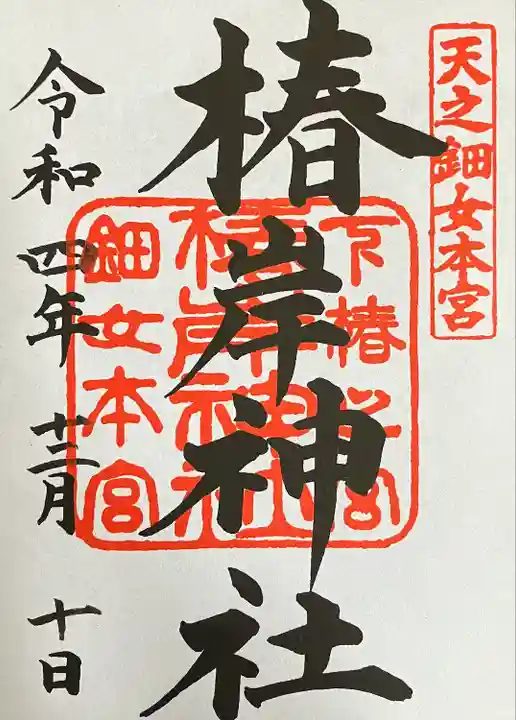 天之鈿女本宮
椿岸神社
下椿宮
椿岸神社
鈿女本宮
令和四年十二月十日